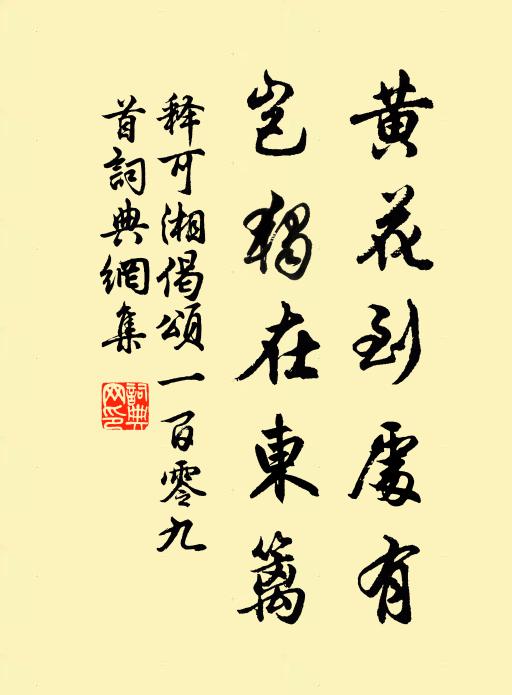 黄花到處有
豈獨在東籬
释可湘偈頌一百零九
首詞典網集
詞典
网印